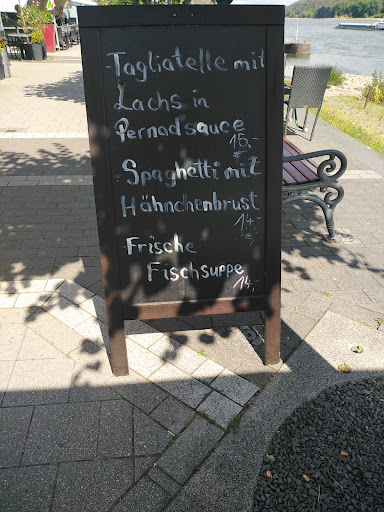 Tagliatelle mit
Lachs in
Pernodsauce
16,-
Spaghetti mit
Hähnchenbrust
14,-
Frische
Fischsuppe
14,-